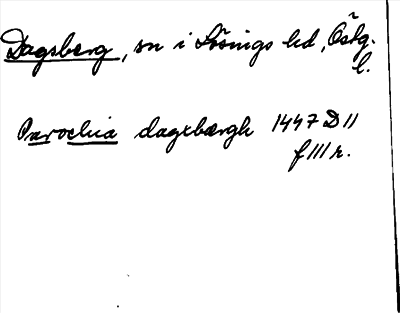 Dagsberg, sn i Lösings hd, Östg.
l.
Parochia dagxbærgh 1447 D 11
f III r.